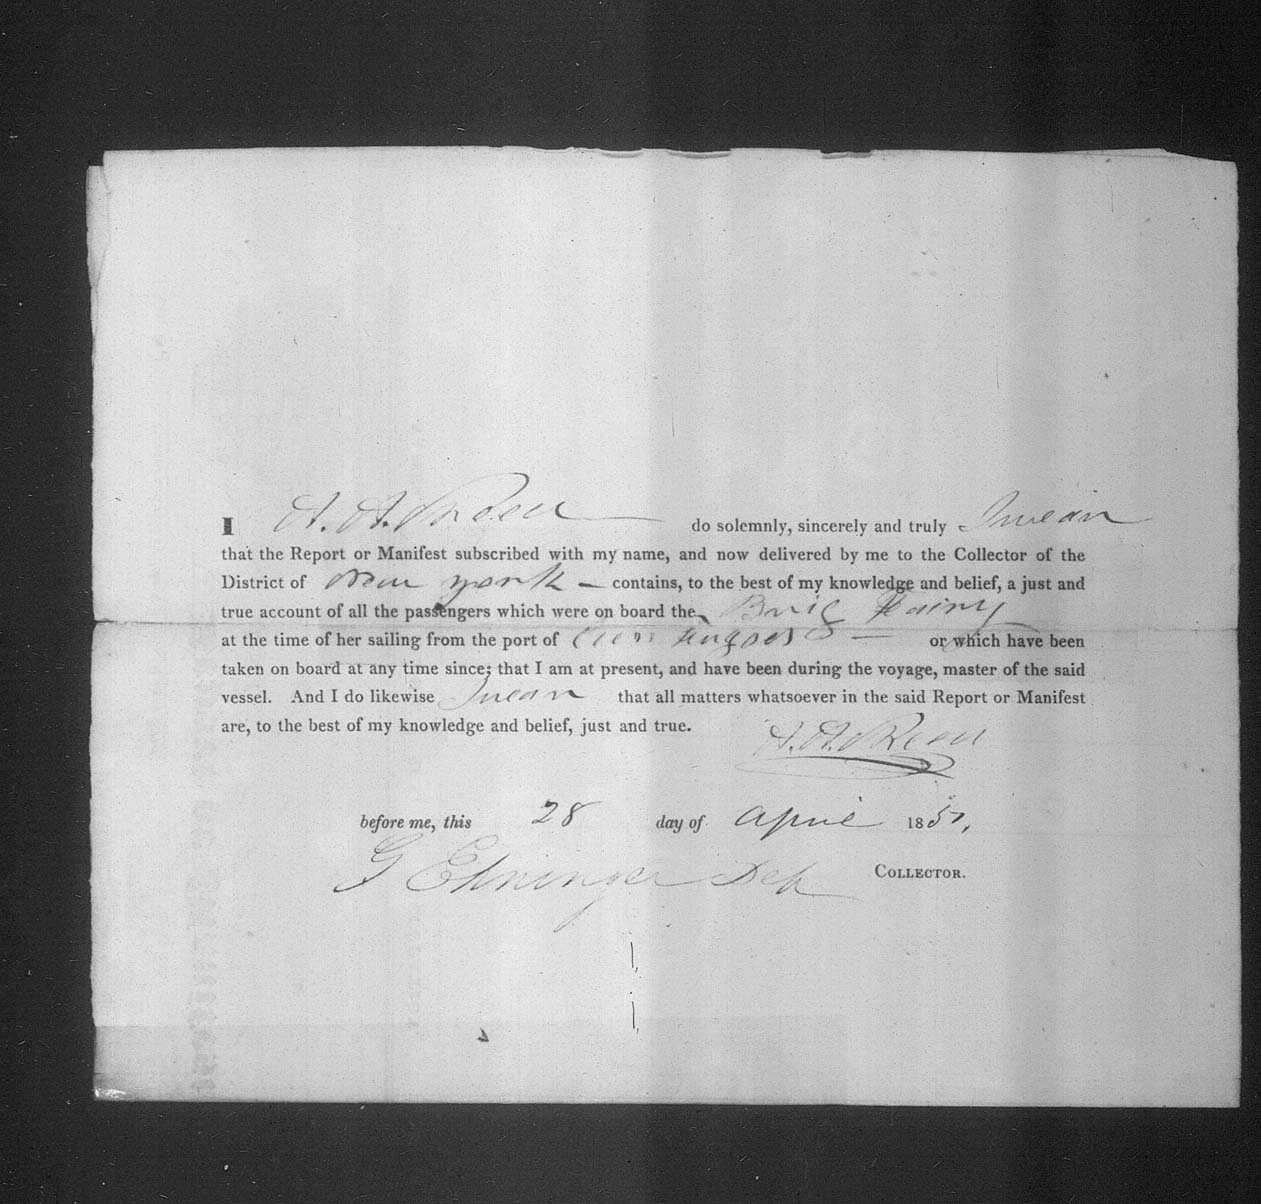 I A. A. Reed do solemnly, sincerely and truly Swear
that the Report or Manifest subscribed with my name, and now delivered by me to the Collector of the
District of New York – contains, to the best of my knowledge and belief, a just and
true account of all the passengers which were on board the Brig
at the time of her sailing from the port of or which have been
taken on board at any time since; that I am at present, and have been during the voyage, master of the said
vessel. And I do likewise Swear that all matters whatsoever in the said Report or Manifest
are, to the best of my knowledge and belief, just and true.
A. A. Reed
before me, this 28 day of April 1851,
G Dep COLLECTOR.